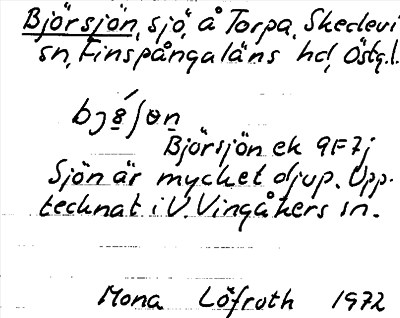 Björsjön, sjö, å Torpa, Skedevi
sn, Finspångaläns hd, Östg.l.
Björsjön ek 9F7j
Sjön är mycket djup. Upp-
tecknat i V. Vingåkers sn.
Mona Löfroth 1972